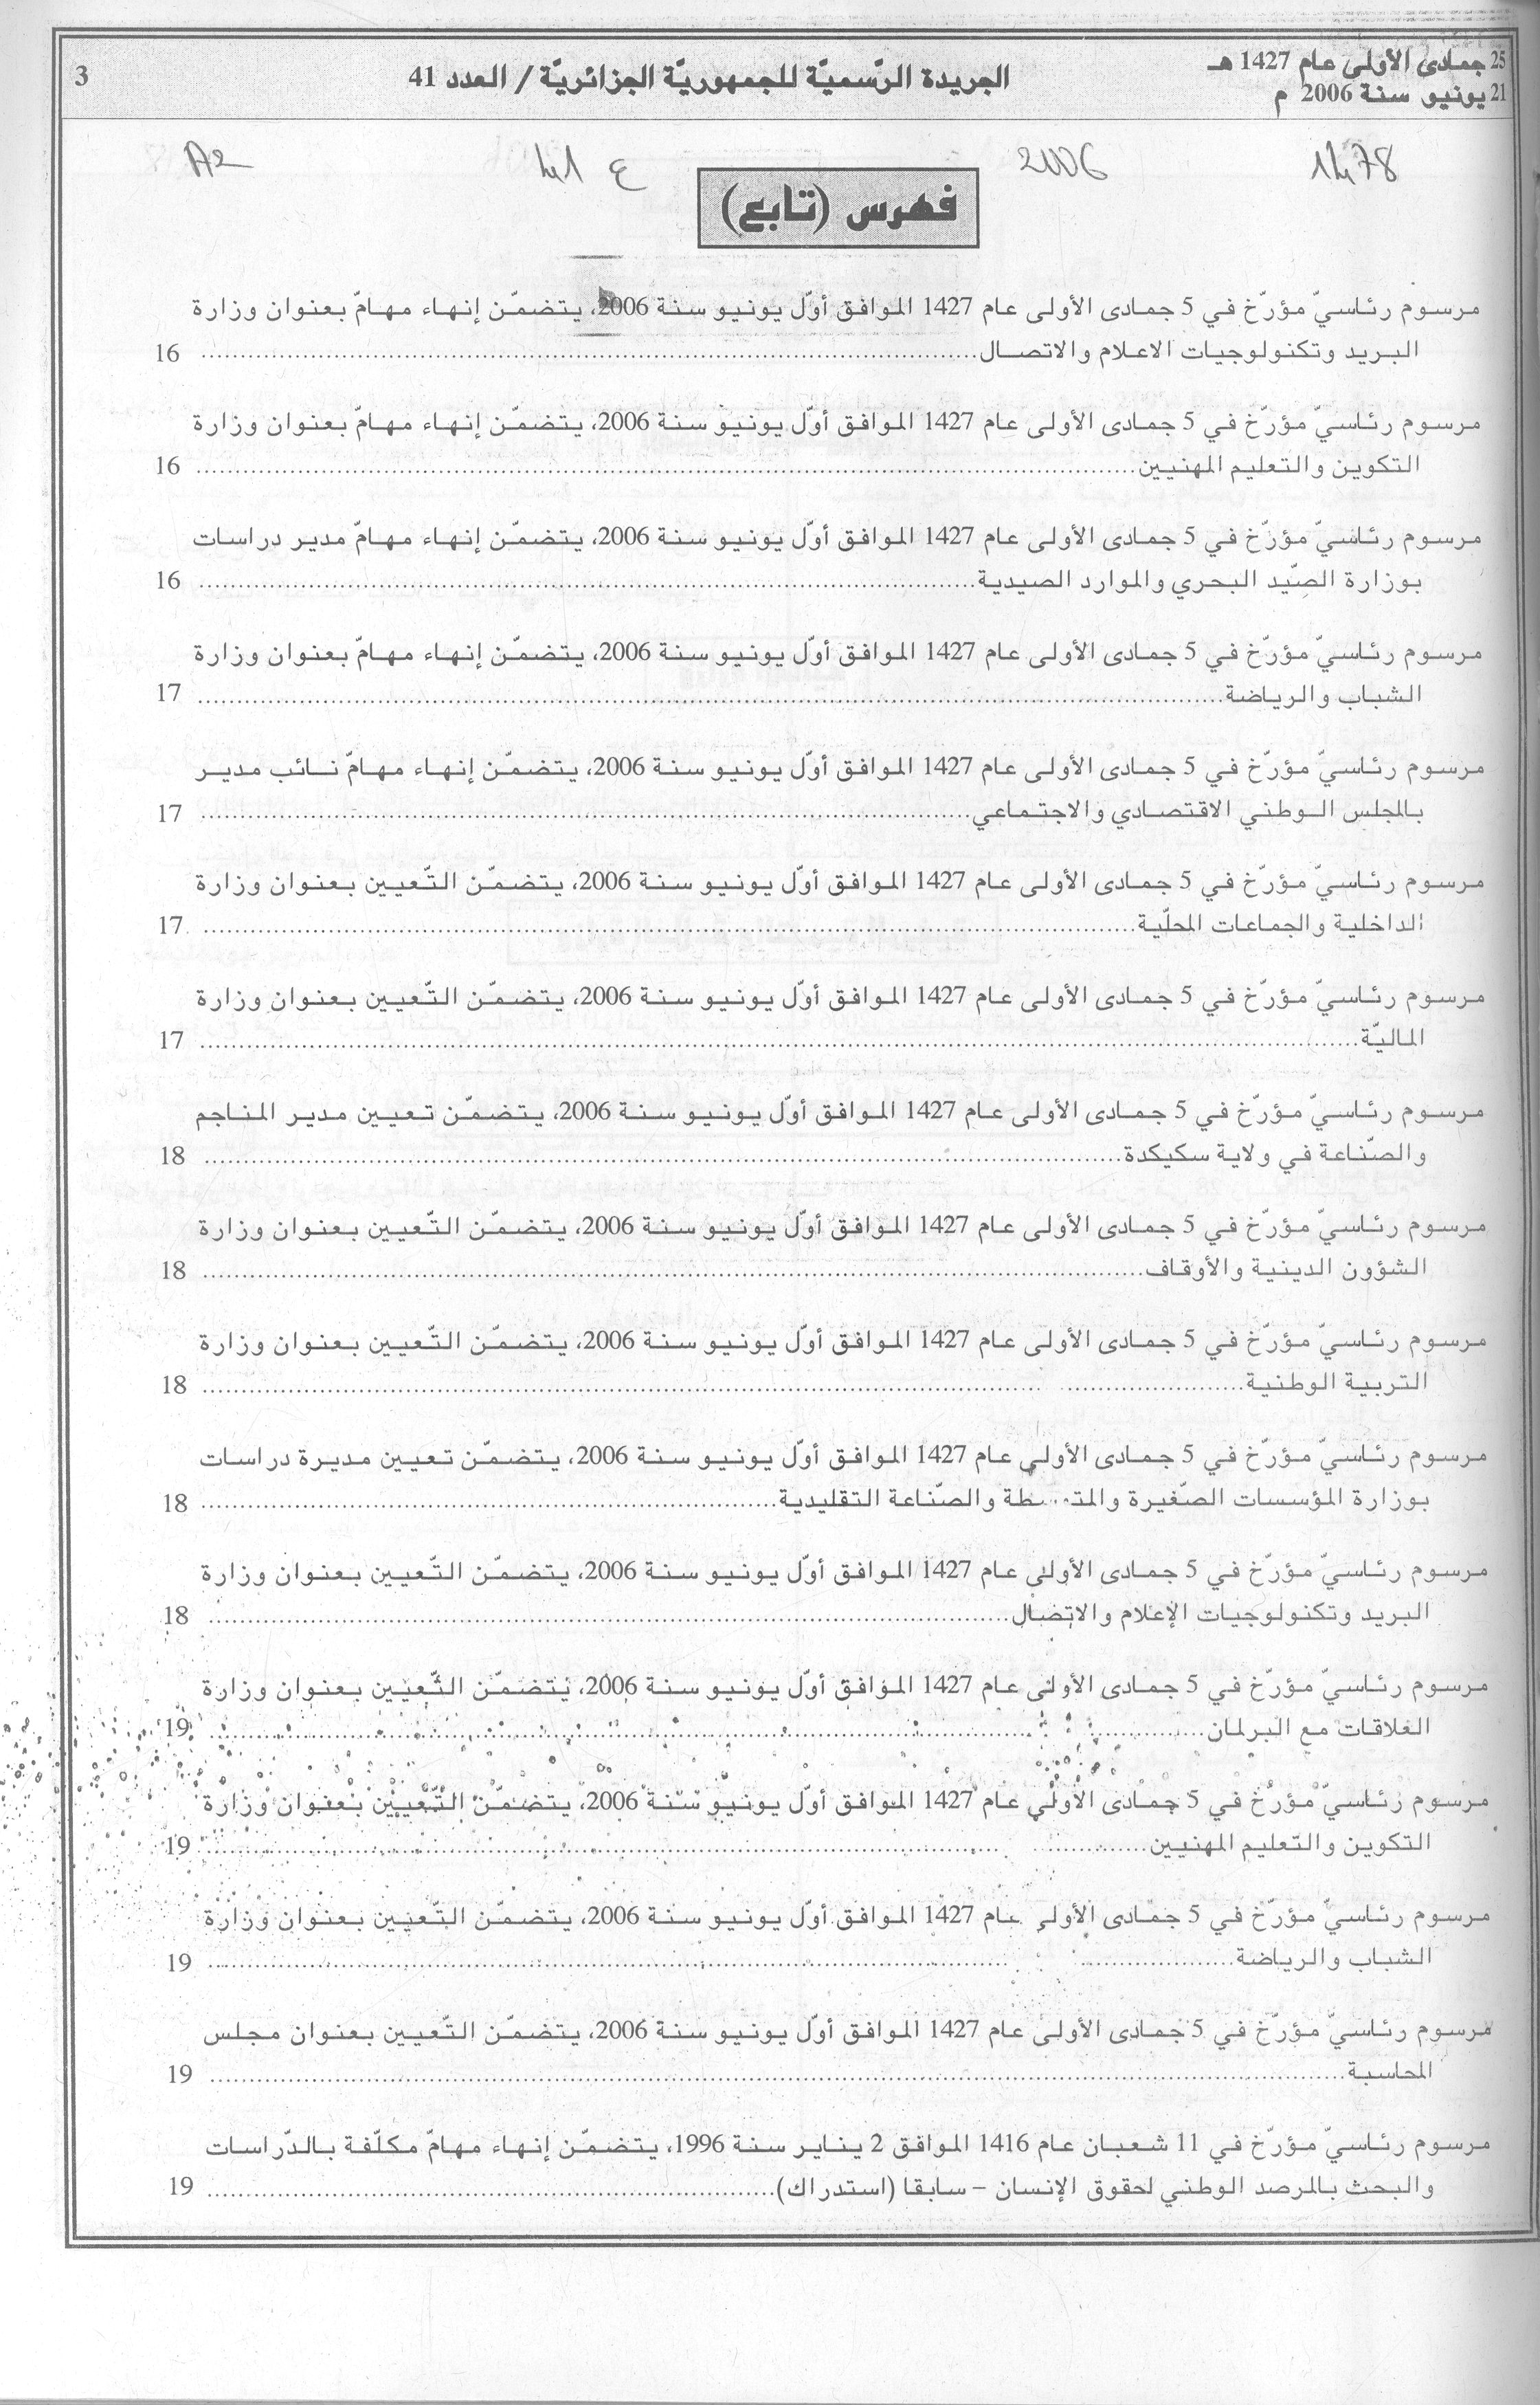 25 جمادى الأولى عام 1427 هـ
21 يونيو سنة 2006 م
الجريدة الرّسميّة للجمهوريّة الجزائريّة / العدد 41
3
1478
2006
ع 41
A2
فهرس (تابع)
مرسوم رئاسيّ مؤرّخ في 5 جمادى الأولى عام 1427 الموافق أوّل يونيو سنة 2006، يتضمّن إنهاء مهامّ بعنوان وزارة
البريد وتكنولوجيات الاعلام والاتصال.......... 16
مرسوم رئاسيّ مؤرّخ في 5 جمادى الأولى عام 1427 الموافق أوّل يونيو سنة 2006، يتضمّن إنهاء مهامّ بعنوان وزارة
التكوين والتعليم المهنيين.......... 16
مرسوم رئاسيّ مؤرّخ في 5 جمادى الأولى عام 1427 الموافق أوّل يونيو سنة 2006، يتضمّن إنهاء مهامّ مدير دراسات
بوزارة الصّيد البحري والموارد الصيدية.......... 16
مرسوم رئاسيّ مؤرّخ في 5 جمادى الأولى عام 1427 الموافق أوّل يونيو سنة 2006، يتضمّن إنهاء مهامّ بعنوان وزارة
الشباب والرياضة.......... 17
مرسوم رئاسيّ مؤرّخ في 5 جمادى الأولى عام 1427 الموافق أوّل يونيو سنة 2006، يتضمّن إنهاء مهامّ نائب مدير
بالمجلس الوطني الاقتصادي والاجتماعي.......... 17
مرسوم رئاسيّ مؤرّخ في 5 جمادى الأولى عام 1427 الموافق أوّل يونيو سنة 2006، يتضمّن التّعيين بعنوان وزارة
الداخلية والجماعات المحلّية.......... 17
مرسوم رئاسيّ مؤرّخ في 5 جمادى الأولى عام 1427 الموافق أوّل يونيو سنة 2006، يتضمّن التّعيين بعنوان وزارة
الماليّة.......... 17
مرسوم رئاسيّ مؤرّخ في 5 جمادى الأولى عام 1427 الموافق أوّل يونيو سنة 2006، يتضمّن تعيين مدير المناجم
والصّناعة في ولاية سكيكدة.......... 18
مرسوم رئاسيّ مؤرّخ في 5 جمادى الأولى عام 1427 الموافق أوّل يونيو سنة 2006، يتضمّن التّعيين بعنوان وزارة
الشؤون الدينية والأوقاف.......... 18
مرسوم رئاسيّ مؤرّخ في 5 جمادى الأولى عام 1427 الموافق أوّل يونيو سنة 2006، يتضمّن التّعيين بعنوان وزارة
التربية الوطنية.......... 18
مرسوم رئاسيّ مؤرّخ في 5 جمادى الأولى عام 1427 الموافق أوّل يونيو سنة 2006، يتضمّن تعيين مديرة دراسات
بوزارة المؤسسات الصّغيرة والمتوسطة والصّناعة التقليدية.......... 18
مرسوم رئاسيّ مؤرّخ في 5 جمادى الأولى عام 1427 الموافق أوّل يونيو سنة 2006، يتضمّن التّعيين بعنوان وزارة
البريد وتكنولوجيات الإعلام والاتصال.......... 18
مرسوم رئاسيّ مؤرّخ في 5 جمادى الأولى عام 1427 الموافق أوّل يونيو سنة 2006، يتضمّن التّعيين بعنوان وزارة
العلاقات مع البرلمان.......... 19
مرسوم رئاسيّ مؤرّخ في 5 جمادى الأولى عام 1427 الموافق أوّل يونيو سنة 2006، يتضمّن التّعيين بعنوان وزارة
التكوين والتعليم المهنيين.......... 19
مرسوم رئاسيّ مؤرّخ في 5 جمادى الأولى عام 1427 الموافق أوّل يونيو سنة 2006، يتضمّن التّعيين بعنوان وزارة
الشباب والرياضة.......... 19
مرسوم رئاسيّ مؤرّخ في 5 جمادى الأولى عام 1427 الموافق أوّل يونيو سنة 2006، يتضمّن التّعيين بعنوان مجلس
المحاسبة.......... 19
مرسوم رئاسيّ مؤرّخ في 11 شعبان عام 1416 الموافق 2 يناير سنة 1996، يتضمّن إنهاء مهامّ مكلّفة بالدّراسات
والبحث بالمرصد الوطني لحقوق الإنسان – سابقا (استدراك).......... 19